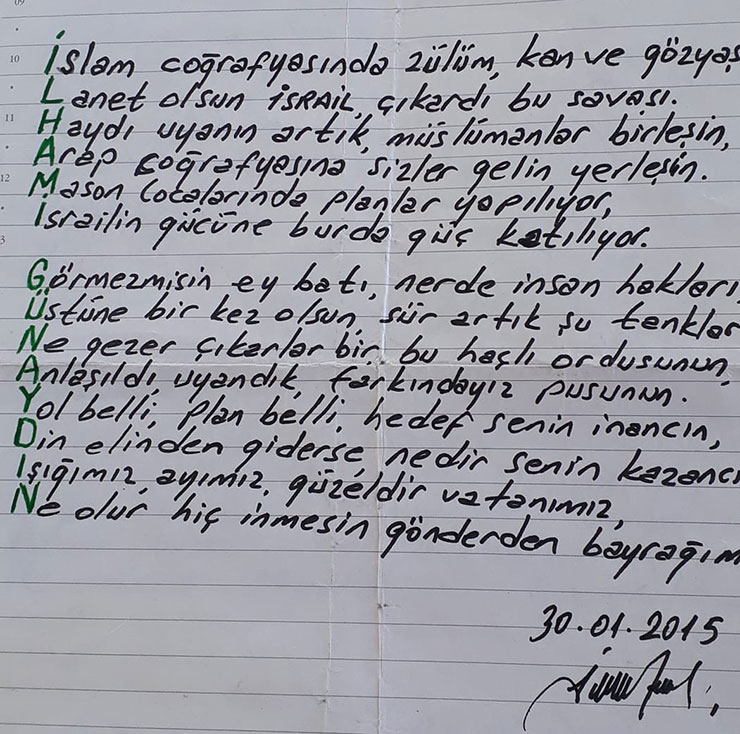 09
10
İslam coğrafyasında zülüm, kan ve gözyaş
Lanet olsun İSRAİL, çıkardı bu savaşı.
11
Haydı uyanın artık, müslümanlar birleşin,
Arap coğrafyasına sizler gelin yerleşin.
12
Mason localarında planlar yapılıyor,
İsrailin gücüne burda güç katılıyor.
3
Görmezmisin ey batı, nerde insan hakları,
Üstüne bir kez olsun, sür artık şu tanklar
Ne gezer çıkarlar bir, bu haçlı ordusunun,
Anlaşıldı, uyandık, farkındayız pusunun.
Yol belli, plan belli, hedef senin inancın,
Din elinden giderse, nedir senin kazancı
Işığımız, ayımız, güzeldir vatanımız,
Ne olur hiç inmesin gönderden bayrağım
30.01.2015